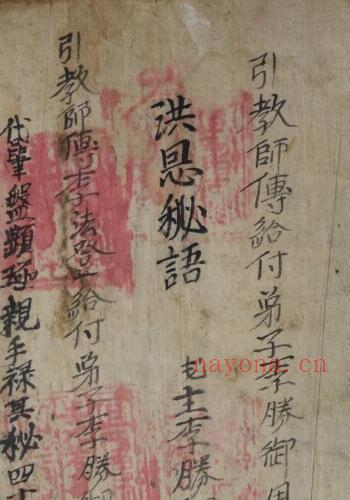 引教師傳給付弟子李勝御用
洪恩秘語
主李勝
引教師傳李法登給付弟子李勝御
代筆盤顯 親手祿其秘四十
nayona.cn